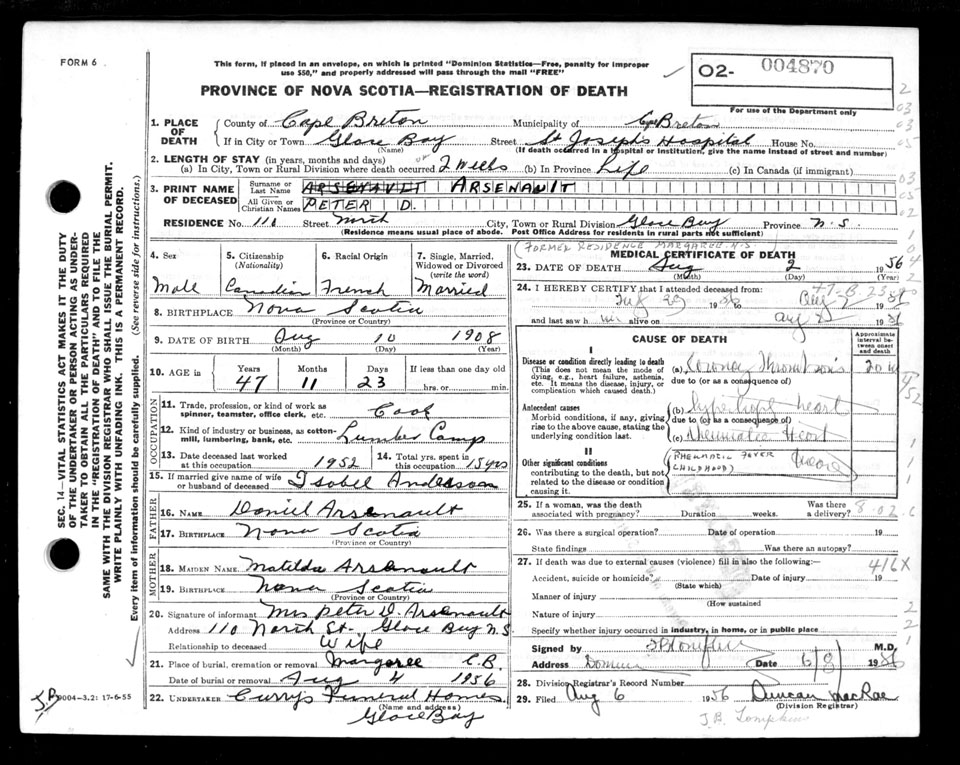 FORM 6
This form, if placed in an envelope, on which is printed "Dominion Statistics—Free, penalty for improper
use $50," and properly addressed will pass through the mail "FREE"
02- 004870
For use of the Department only
PROVINCE OF NOVA SCOTIA—REGISTRATION OF DEATH
1. PLACE OF DEATH County of Cape Breton Municipality of Cape Breton
If in City or Town Glace Bay Street St Joseph's Hospital House No.
(Name) (If death occurred in a Hospital or Institution, give the name instead of street and number)
2. LENGTH OF STAY (in years, months and days)
(a) In City, Town or Rural Division where death occurred 2 Weeks (b) In Province Life (c) In Canada (if immigrant)
3. PRINT NAME OF DECEASED Surname or Last Name ARSENAULT ARSENAULT
All Given or Christian Names PETER D.
RESIDENCE No. 110 Street North City, Town or Rural Division Glace Bay Province N.S.
(Residence means usual place of abode. Post Office Address for residents in rural parts not sufficient)
(FORMER RESIDENCE MARGAREE N.S.
4. Sex 5. Citizenship (Nationality) 6. Racial Origin 7. Single, Married, Widowed or Divorced (write the word)
Male Canadian French Married
8. BIRTHPLACE Nova Scotia
(Province or Country)
9. DATE OF BIRTH Aug 10 1908
(Month) (Day) (Year)
10. AGE in Years Months Days If less than one day old
47 11 23 hrs. or min.
OCCUPATION
11. Trade, profession, or kind of work as spinner, teamster, office clerk, etc. Cook
12. Kind of industry or business, as cotton-mill, lumbering, bank, etc. Lumber Camp
13. Date deceased last worked at this occupation 1952 14. Total yrs. spent in this occupation 15 yrs
15. If married give name of wife or husband of deceased Isobel Anderson
FATHER
16. NAME Daniel Arsenault
17. BIRTHPLACE Nova Scotia
(Province or Country)
MOTHER
18. MAIDEN NAME Matilda Arsenault
19. BIRTHPLACE Nova Scotia
(Province or Country)
20. Signature of informant Mrs Peter D. Arsenault
Address 110 North St. Glace Bay N.S
Relationship to deceased Wife
21. Place of burial, cremation or removal Margaree C.B.
Date of burial or removal Aug 4 1956
22. UNDERTAKER Curry's Funeral Homes
(Name and address)
Glace Bay
MEDICAL CERTIFICATE OF DEATH
23. DATE OF DEATH Aug 2 1956
(Month) (Day) (Year)
24. I HEREBY CERTIFY that I attended deceased from:
and last saw h alive on
CAUSE OF DEATH
Approximate interval between onset and death
I
Disease or condition directly leading to death
(This does not mean the mode of dying, e.g., heart failure, asthenia, etc. It means the disease, injury, or complication which caused death.)
(a) Coronary Thrombosis
due to (or as a consequence of)
Antecedent causes
Morbid conditions, if any, giving rise to the above cause, stating the underlying condition last.
(b) heart
due to (or as a consequence of)
(c) Rheumatic Heart
II
Other significant conditions
contributing to the death, but not related to the disease or condition causing it.
(RHEUMATIC FEVER
CHILDHOOD)
25. If a woman, was the death associated with pregnancy? Duration weeks. Was there a delivery?
26. Was there a surgical operation? Date of operation 19
State findings Was there an autopsy?
27. If death was due to external causes (violence) fill in also the following: 416X
Accident, suicide or homicide? Date of injury 19
(State which)
Manner of injury
(How sustained
Nature of injury
Specify whether injury occurred in industry, in home, or in public place
Signed by M.D.
Address Date 6/8/ 1956
28. Division Registrar's Record Number
29. Filed Aug 6 1956 Duncan MacRae
(Division Registrar)
J.B. Tompkins
SEC. 14—VITAL STATISTICS ACT MAKES IT THE DUTY
OF THE UNDERTAKER OR PERSON ACTING AS UNDER-
TAKER TO OBTAIN ALL THE PARTICULARS REQUIRED
IN THE "REGISTRATION OF DEATH" AND TO FILE THE
SAME WITH THE DIVISION REGISTRAR WHO SHALL ISSUE THE BURIAL PERMIT.
WRITE PLAINLY WITH UNFADING INK. THIS IS A PERMANENT RECORD.
Every item of information should be carefully supplied. (See reverse side for instructions.)
9004-3.2: 17-6-55